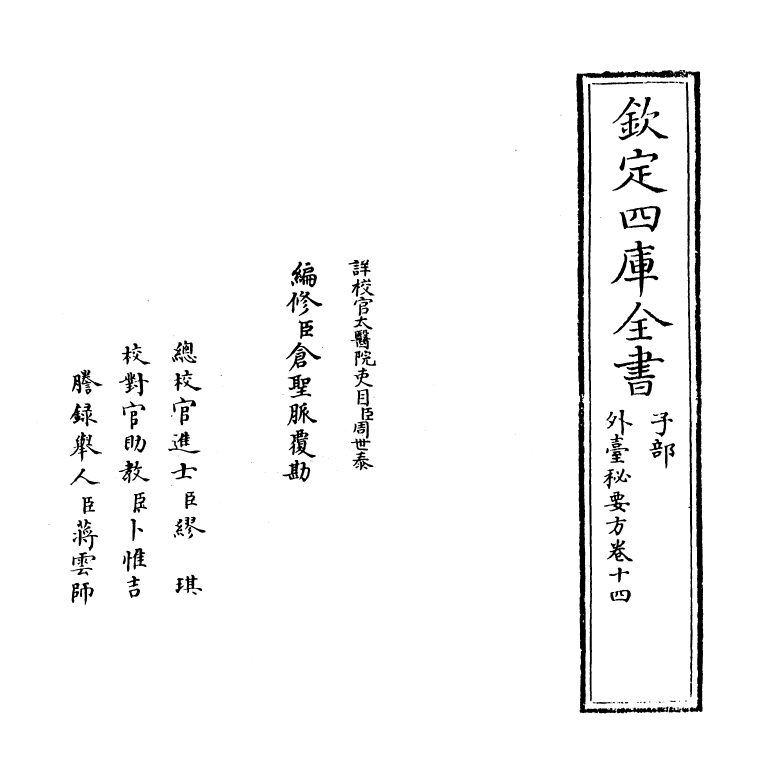 欽定四庫全書
子部
外臺秘要方卷十四
詳校官太醫院吏目臣周世泰
編修臣倉聖脈覆勘
總校官進士臣繆琪
校對官助教臣卜惟吉
謄録舉人臣蔣雲師